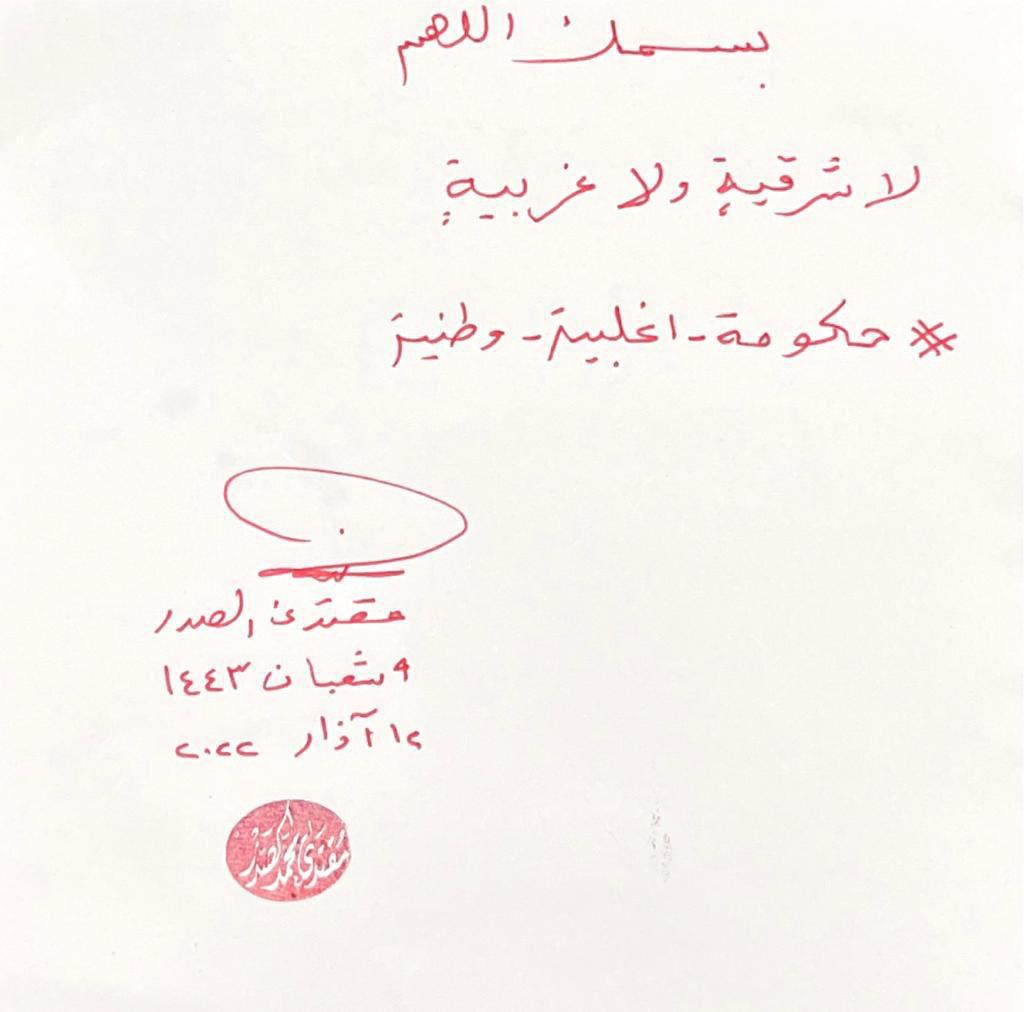 بسمك اللهم
لا شرقيةٍ ولا غربيةٍ
# حكومة-اغلبية-وطنية
مقتدى الصدر
٩ شعبان ١٤٤٣
١٢ آذار ٢٠٢٢
مقتدى محمد الصدر